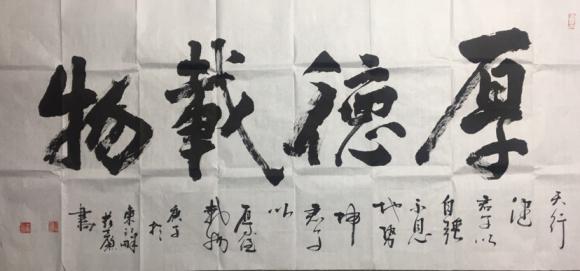 厚德載物
天行
健
君子以
自強
不息
地勢
坤
君子
以
厚德
載物
庚子
於
書